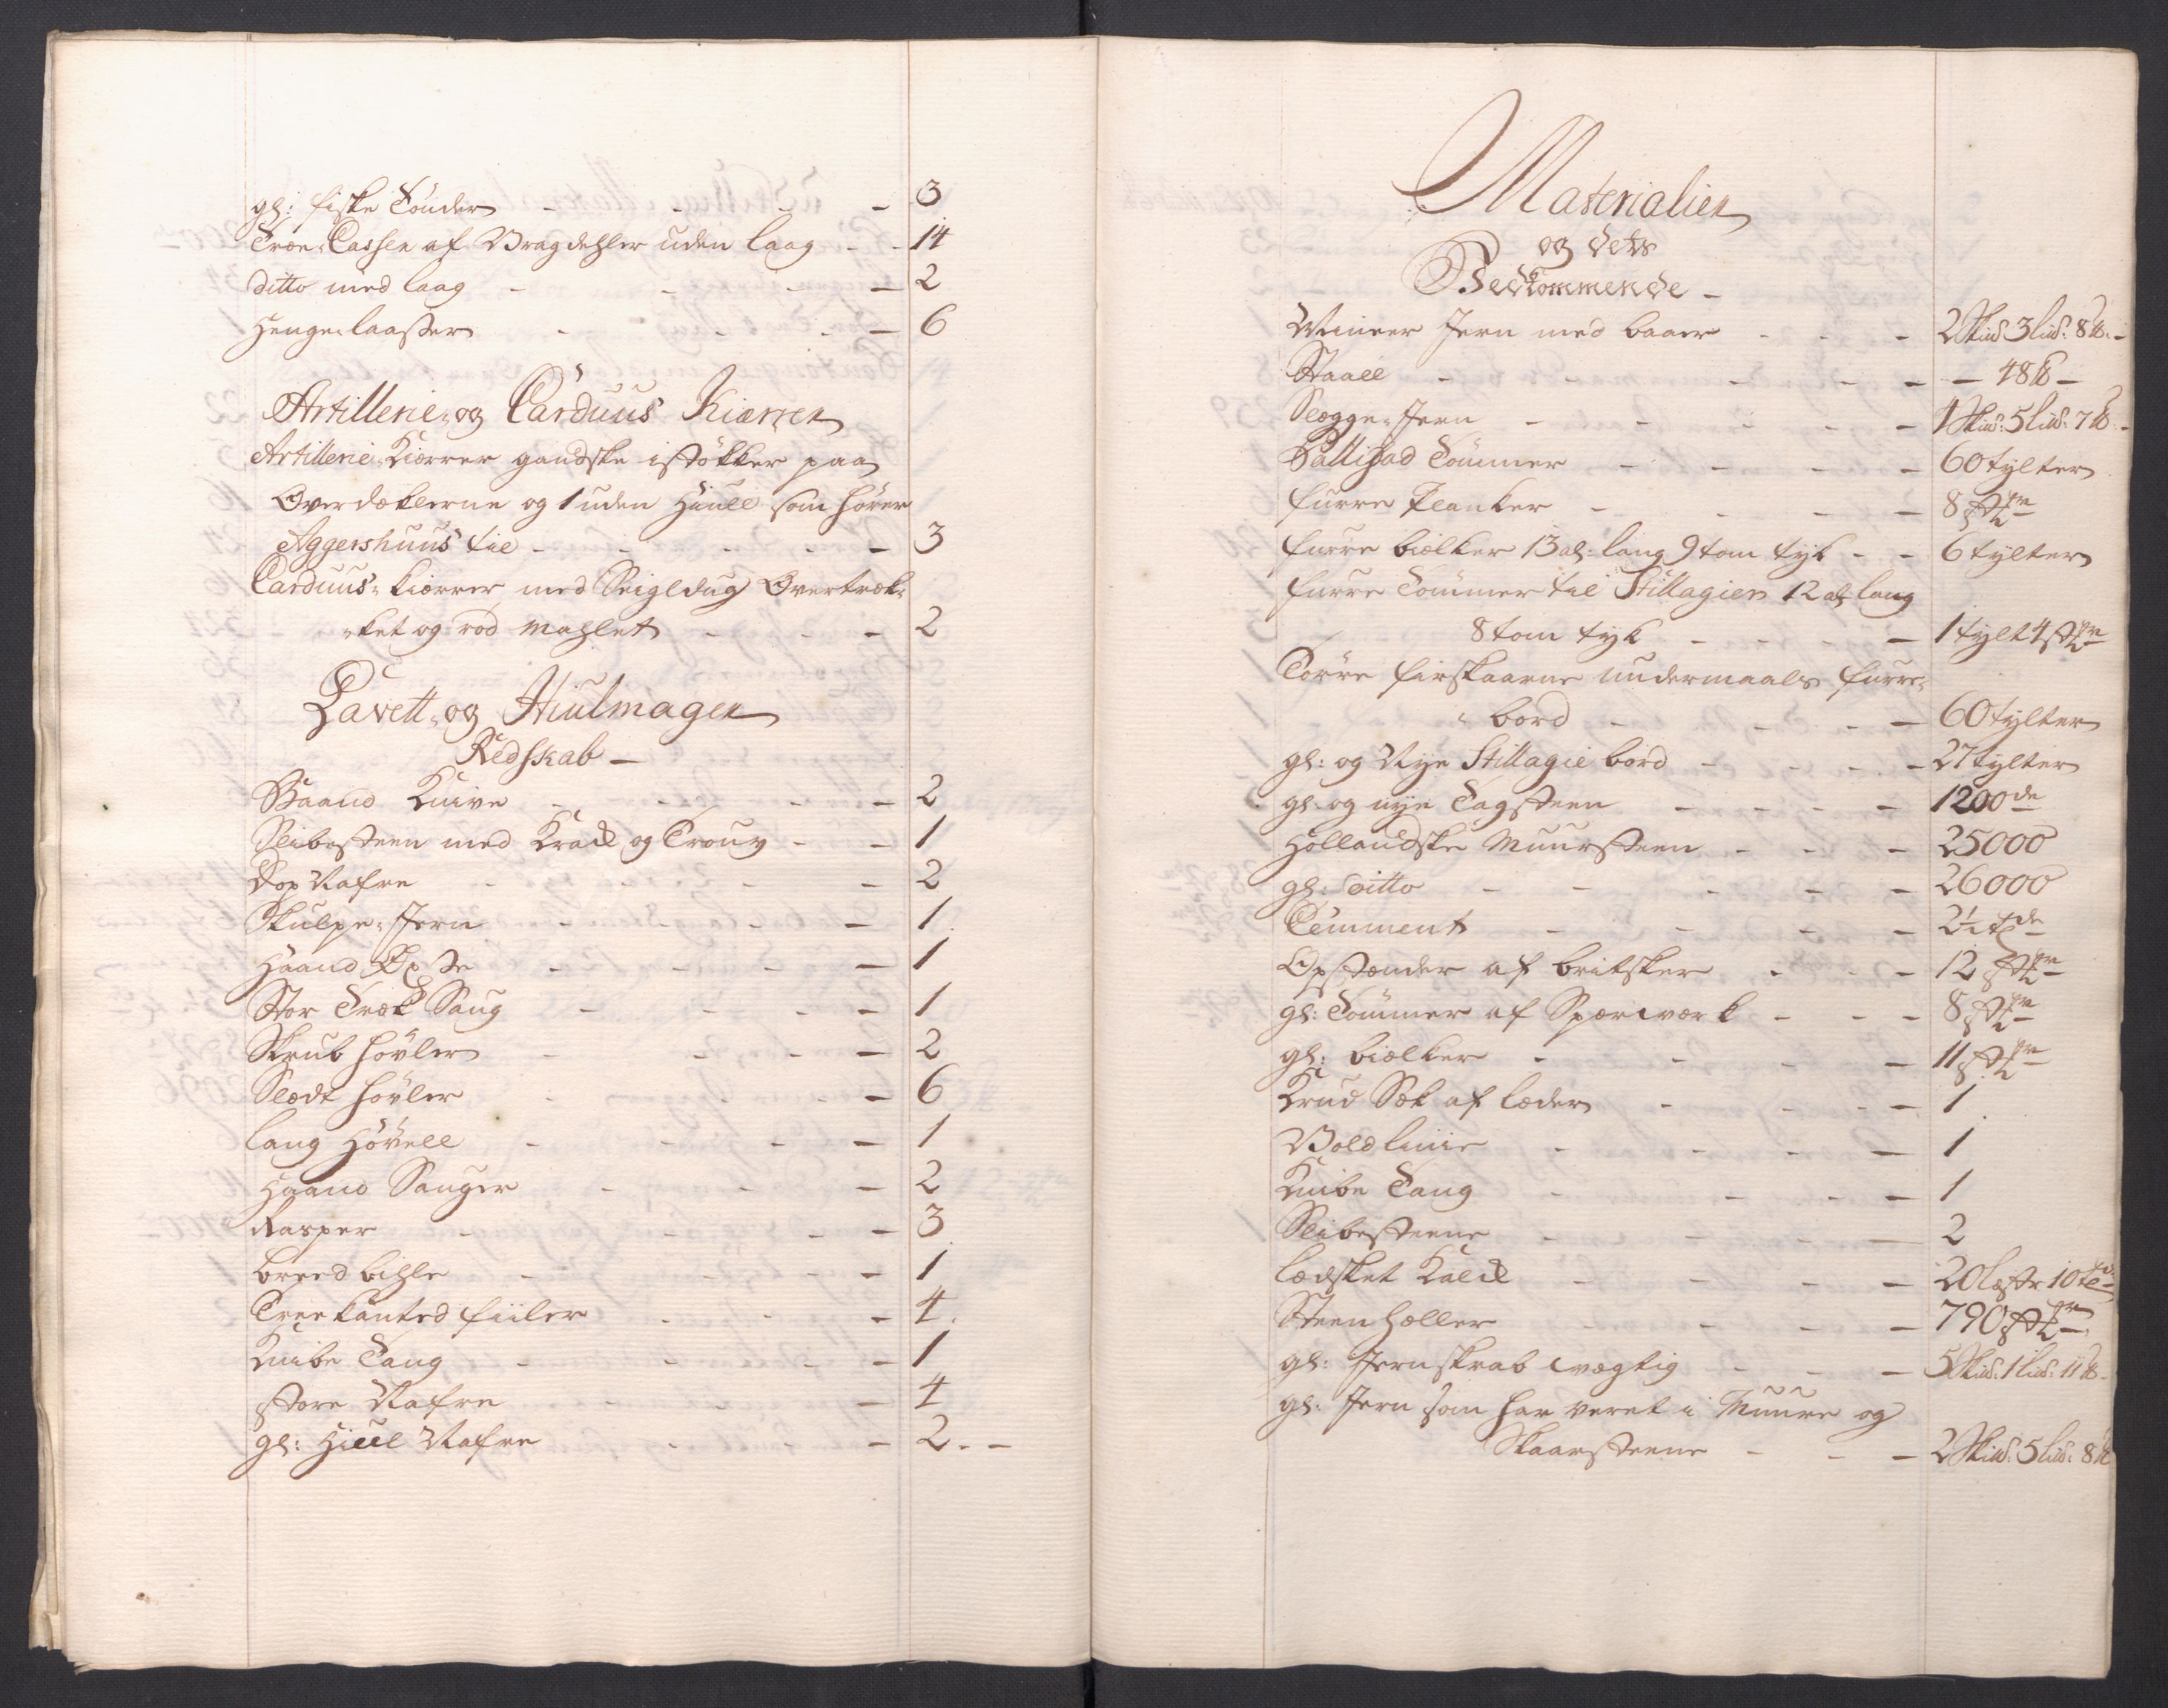 gl: fiske Tönder - - - 3
Træ-Cassen af Vragdehler uden laag - - 14
ditto med laag - - - 2
Henge-laasser - - - 6
Artillerie- og Carduus Kiærrer
Artillerie-Kiærrer gandske istökker paa
Overdæklerne og 1 uden Hiull som hörer
Aggershuus til - - - 3
Carduus-kiærrer med Seigldug Overtræk-
-ket og röd mahlet - - - 2
Lavett- og Hiulmager
Redskab -
Baand Knive - - - 2
Slibesteen med Krad og Troug - - 1
Dop Nafre - - - 2
Skulpe-Jern - - - 1.
Haand Öxe - - - 1
Stor Træk Saug - - - 1
Skrub hövler - - - 2
Slædt hövler - - - 6
lang Hövell - - - 1
Haand Sauger - - - 2
Rasper - - - 3
breed bihle - - - 1
Treekanted fiiler - - - 4.
Knibe Tang - - - 1
store Nafre - - - 4
gl: Hiul Nafre - - - 2. -
Materialier
og dets
Vedkommende -
Uuneer Jern med baaer - - - 2 Skud: 3 liud: 8 ℔. -
Staall - - - 48 ℔ -
Slægge-Jern - - - 1 Skud: 5 liud: 7 ℔. -
Pallisad Tömmer - - - 60 tylter
furre Planker - - - 8 stkr
furre bielker 13 al: lang 9 tom tyk - - 6 tylter
furre Tömmer til Stillagier 12 al: lang
8 tom tyk - - - 1 tylt 4 stkr
Törre firskaarne undermaals furre-
-bord - - - 60 tylter
gl: og Nye Stillagie bord - - - 27 tylter
gl: og nye Tagsteen - - - 1200de
Hollandske Muursteen - - - 25000
gl: ditto - - - 26000
Cemment - - - 2½ tde
Opstander af britsker - - - 12 stkr
gl: Tömmer af Spærværk - - - 8 stkr
gl: bielker - - - 11 stkr
Krud Sæk af læder - - - 1.
Voldlinie - - - 1
Knibe Tang - - - 1
Slibesteene - - - 2
lædsket Kalck - - - 20 læster 10 td:
Steen heller - - - 790 stkr
gl: Jernskrab wægtig - - - 5 Skud: 1 liud: 11 ℔. -
gl: Jern som har veret i Muure og
Skaarsteene - - - 2 Skud: 5 liud: 8 ℔